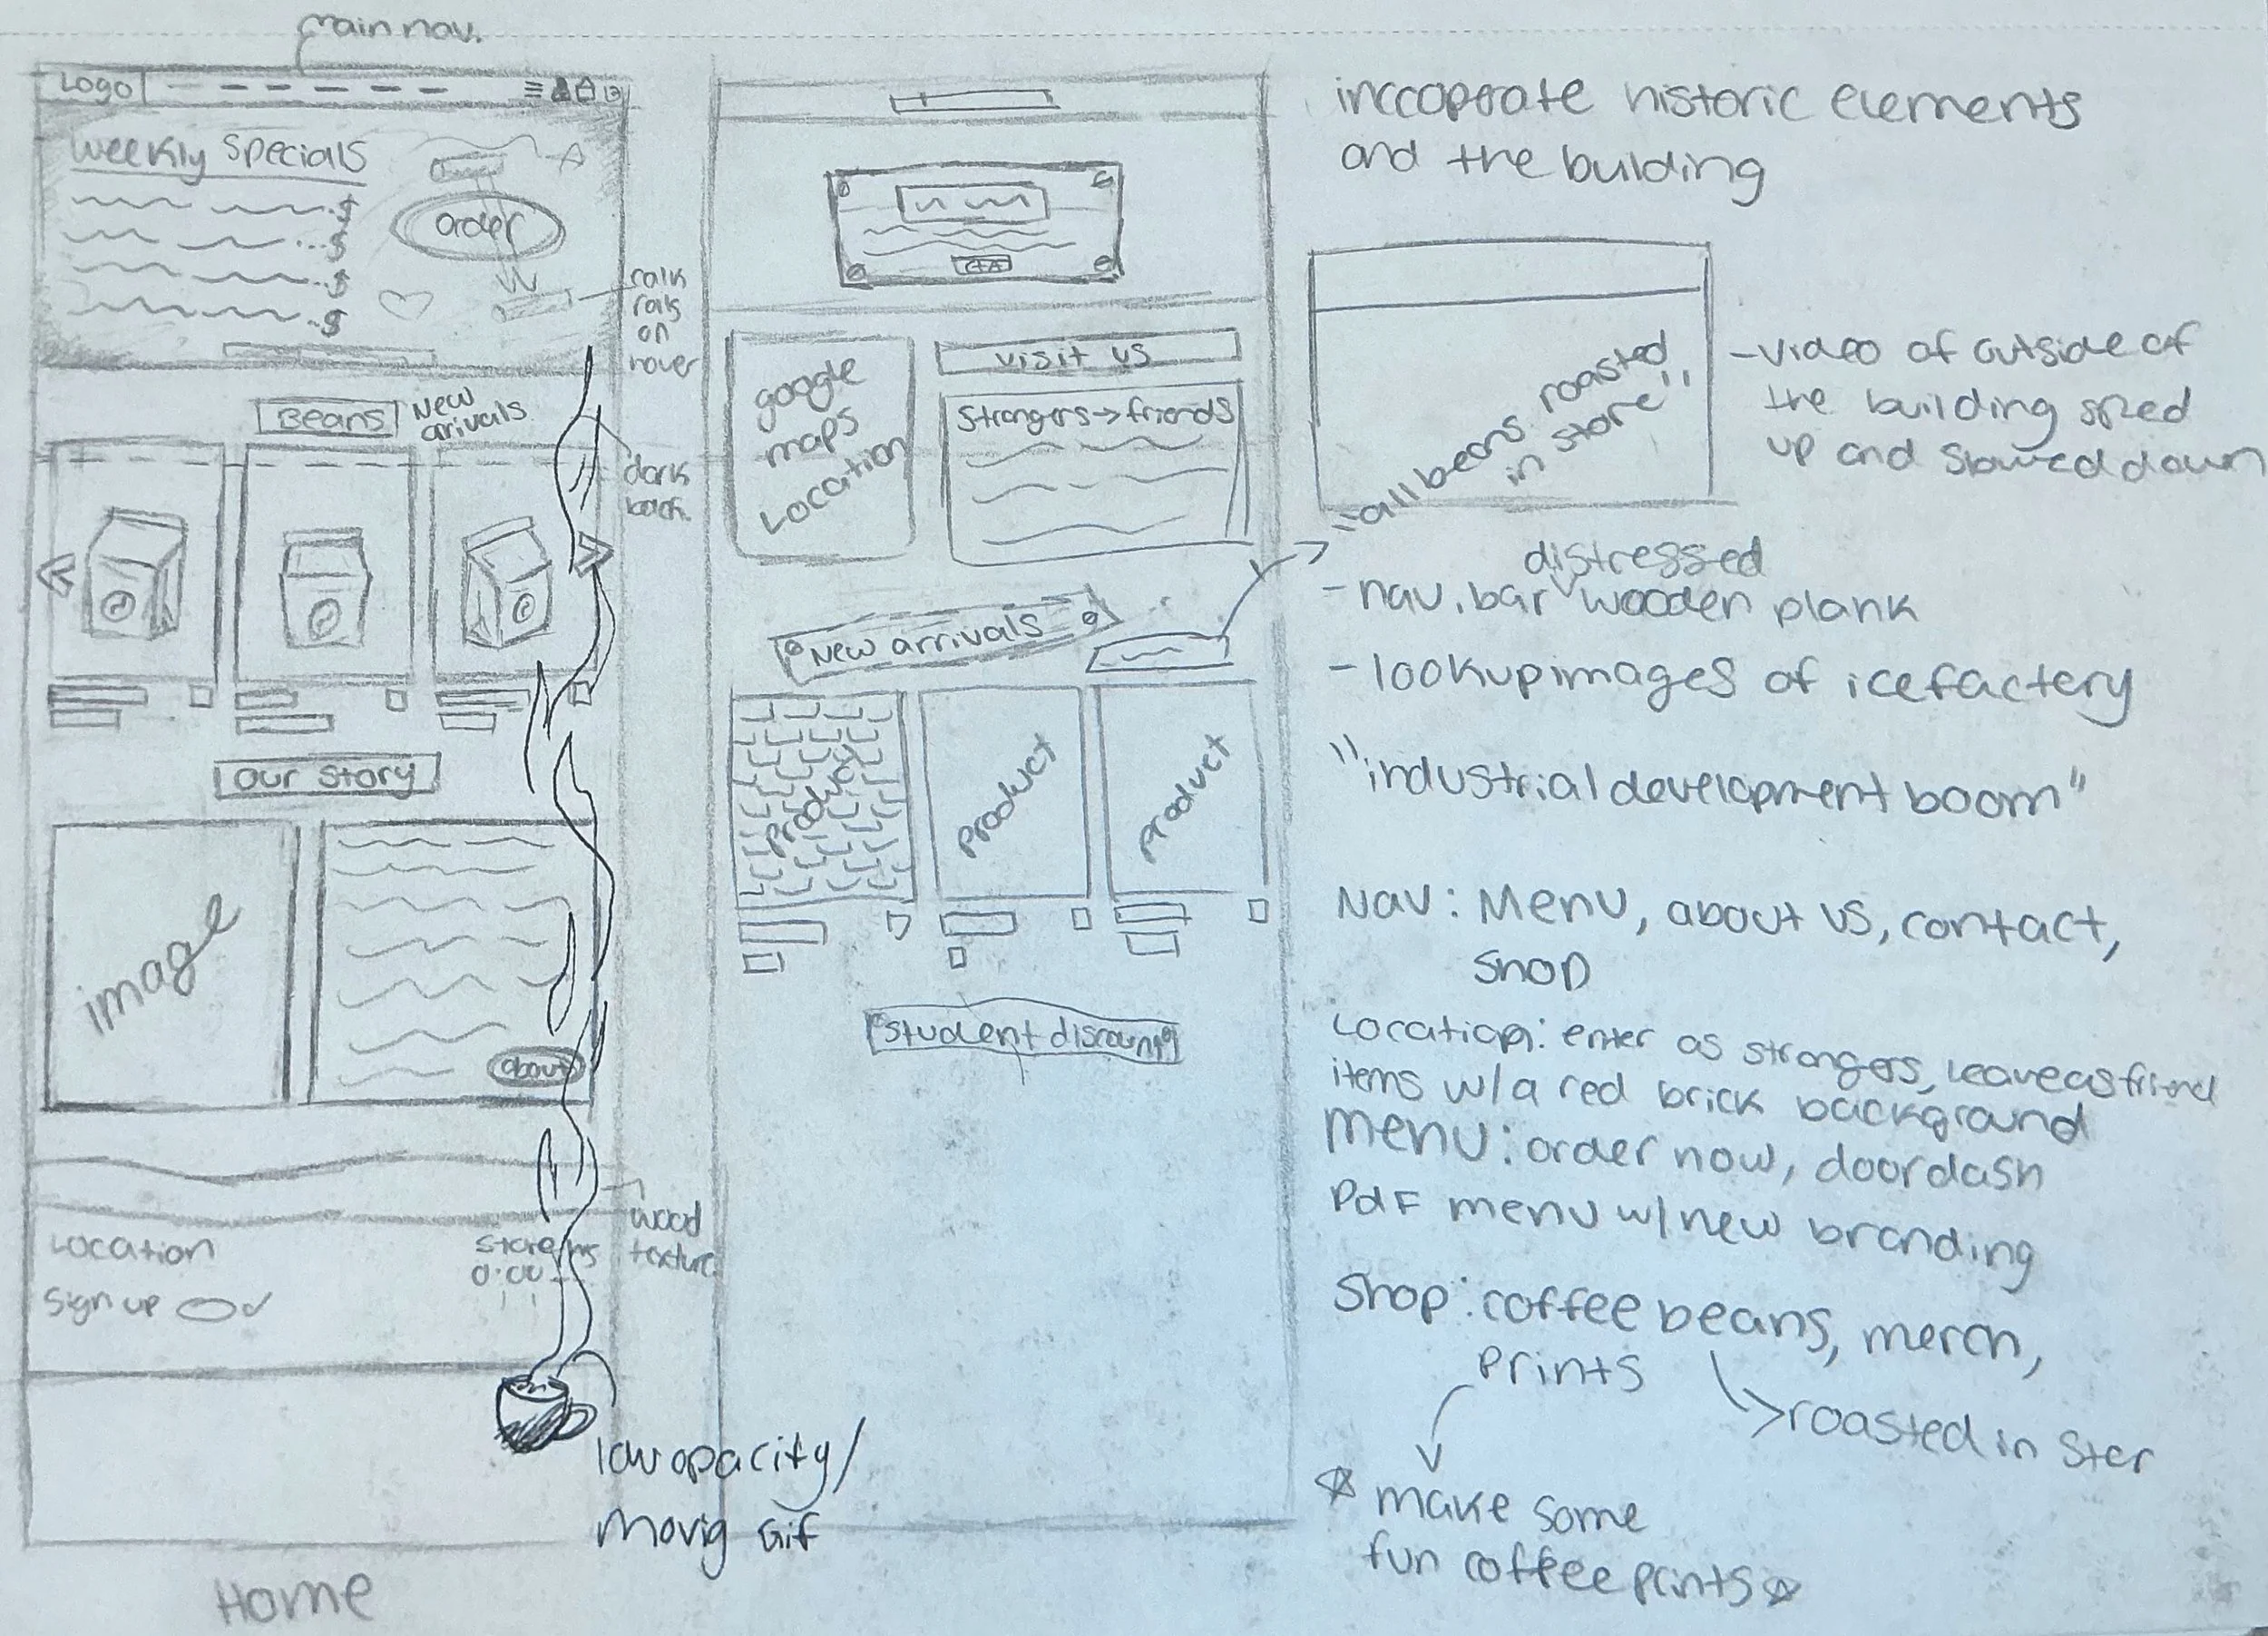 main nav.
Logo
weekly specials
$
$
$
$
order
on
hover
Beans
New
arrivals
dark
our story
image
about
wood
texture
Location
store hrs
0:00
Sign up
low opacity/
movig Gif
Home
CTA
google
maps
Location
visit us
Strangers → friends
New arrivals
product
product
product
student discount
inccoporate historic elements
and the building
"all beans roasted
in store"
-video of outside of
the building sped
up and slowed down
distressed
- nav. bar wooden plank
- lookup images of icefactery
"industrial development boom"
Nav: Menu, about us, contact,
shop
Location: enter as strangers, leave as friend
items w/a red brick background
menu: order now, doordash
PdF menu w/ new branding
Shop: coffee beans, merch,
prints
roasted in ster
make some
fun coffee prints